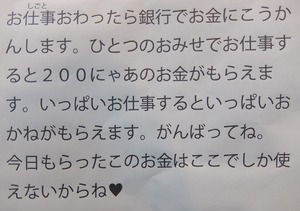 しごと
お仕事おわったら銀行でお金にこうか
んします。ひとつのおみせでお仕事す
ると２００にゃあのお金がもらえま
す。いっぱいお仕事するといっぱいお
かねがもらえます。がんばってね。
今日もらったこのお金はここでしか使
えないからね♥